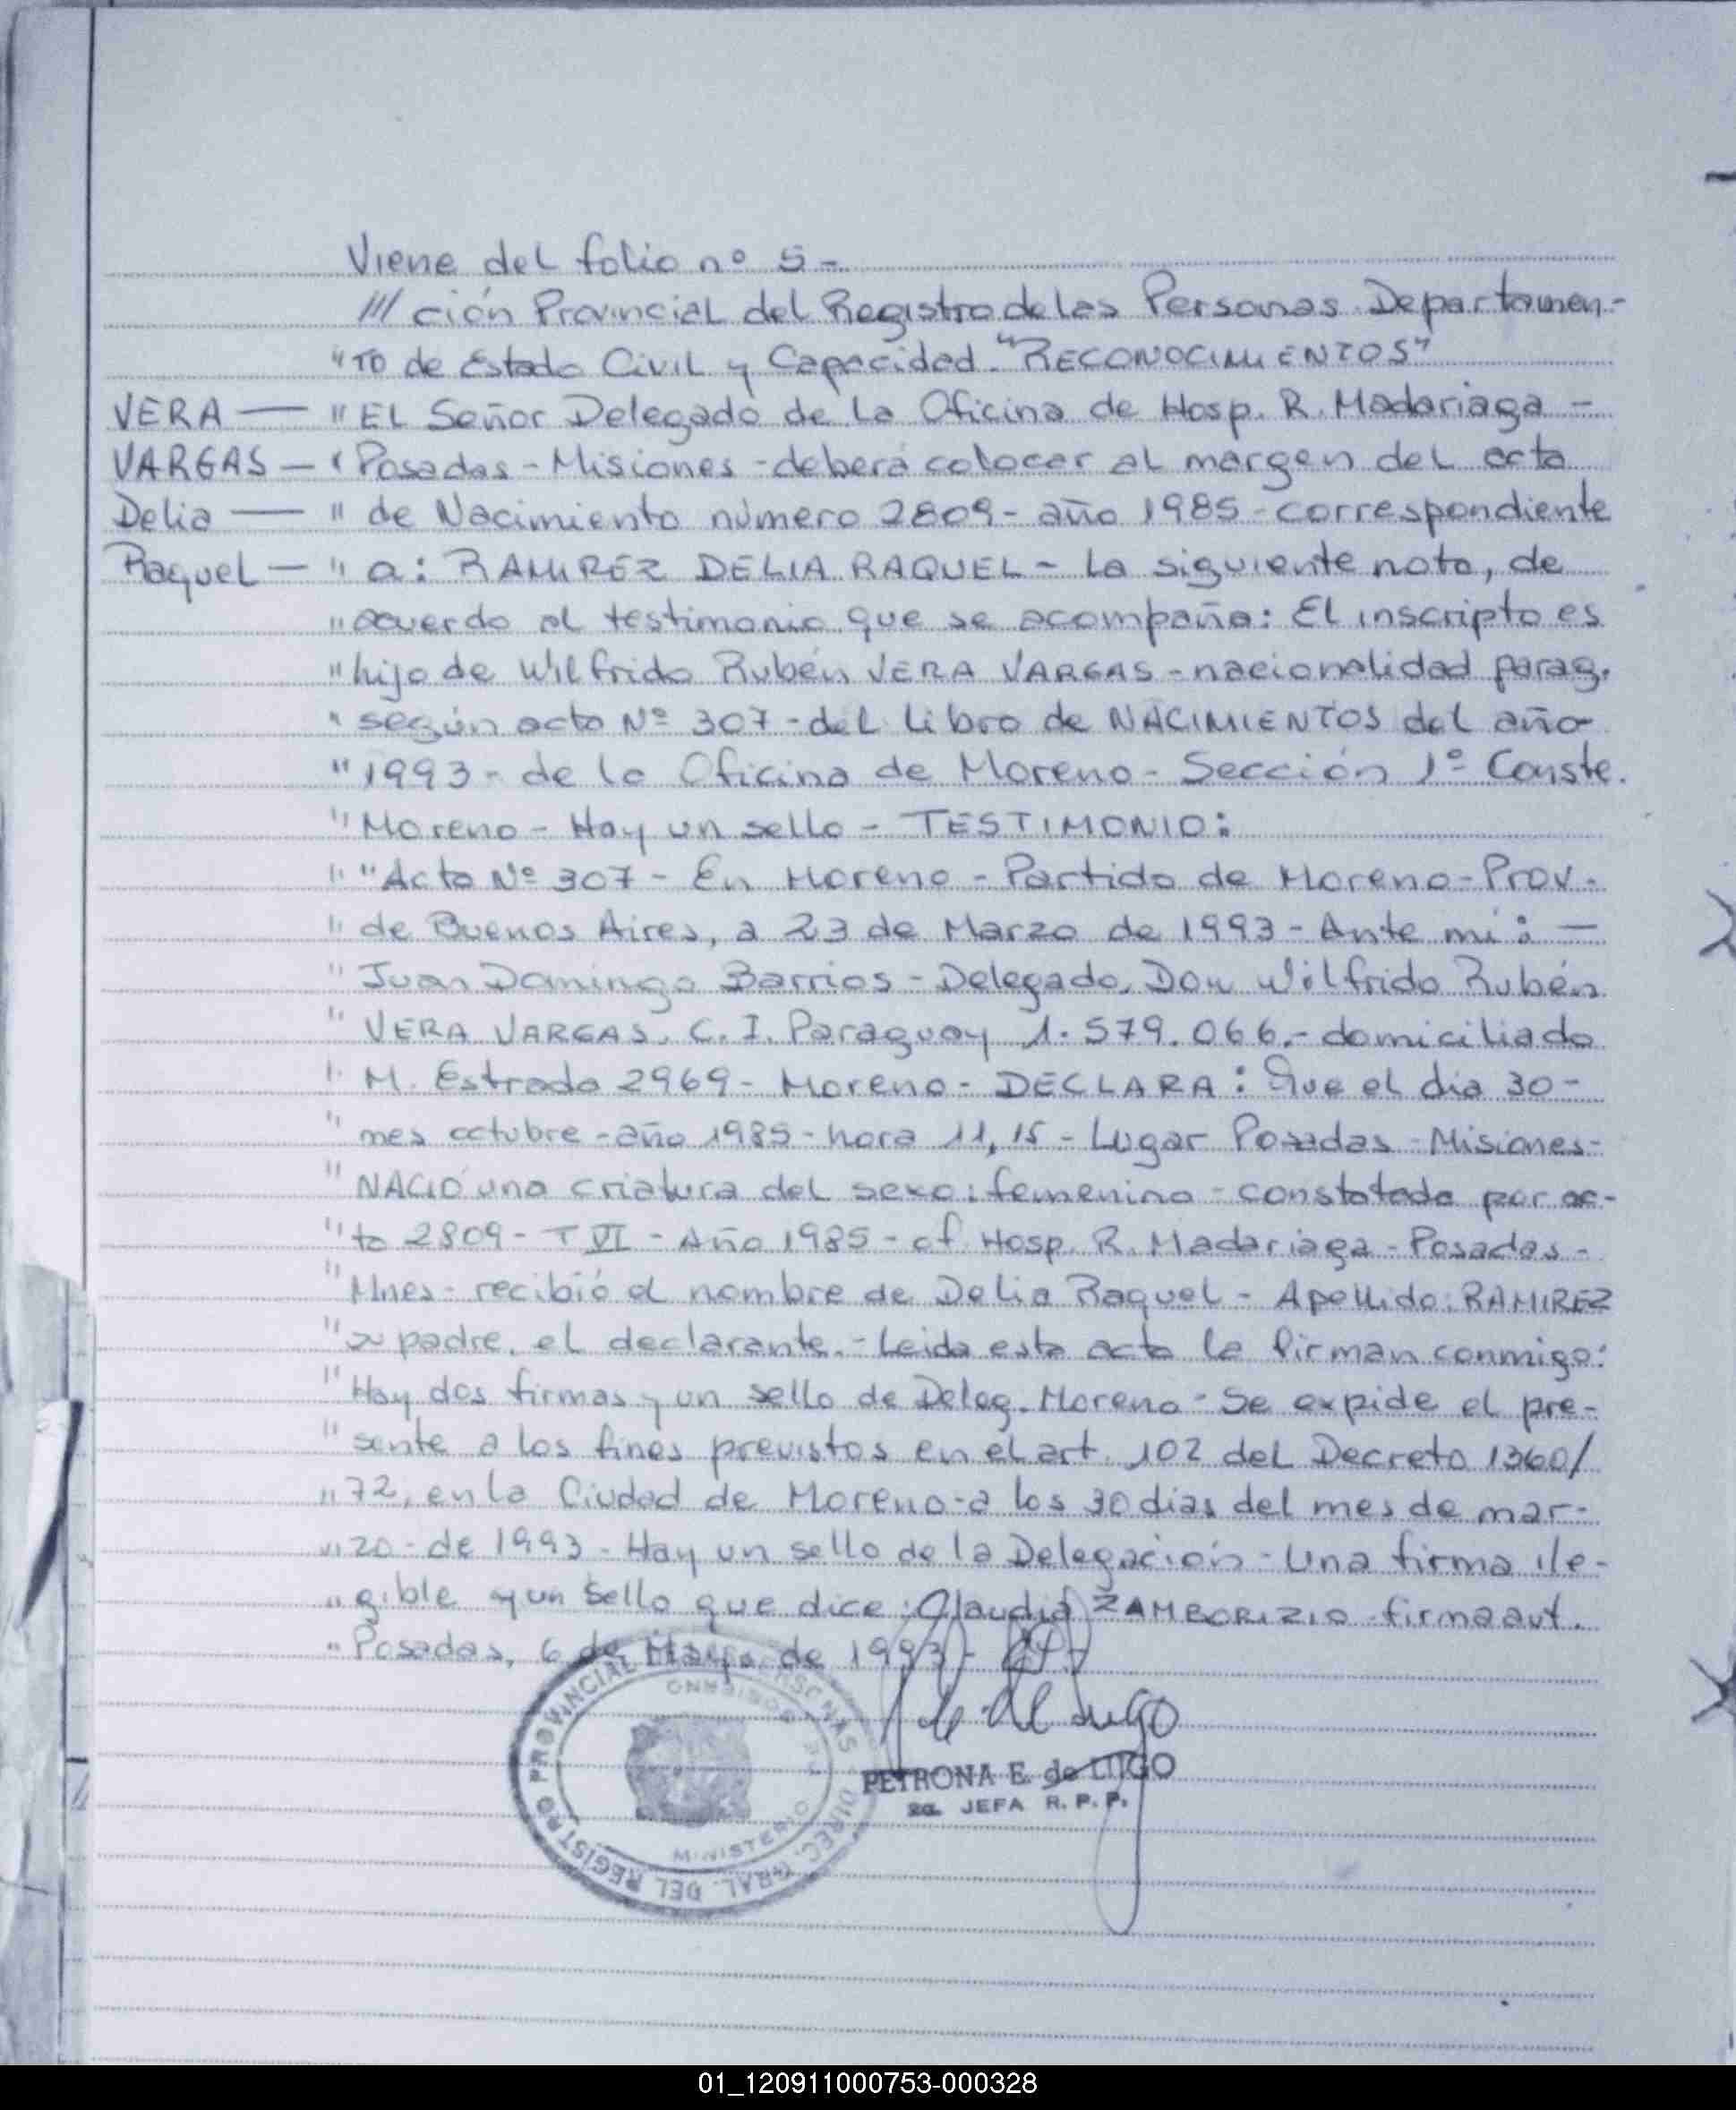 Viene del folio nº 5-
/// ción Provincial del Registro de las Personas Departamen-
"TO de Estado Civil y Capacidad. "RECONOCIMIENTOS"
VERA — " EL Señor Delegado de la Oficina de Hosp. R. Madariaga -
VARGAS — " Posadas - Misiones - deberá colocar al margen del acta
Delia — " de Nacimiento número 2809 - año 1985 - correspondiente
Raquel — " a: RAMIREZ DELIA RAQUEL - la siguiente nota, de
" acuerdo al testimonio que se acompaña: El inscripto es
" hijo de Wilfrido Rubén VERA VARGAS - nacionalidad parag.
" según acta Nº 307 - del Libro de NACIMIENTOS del año
" 1993 - de la Oficina de Moreno - Sección 1º Conste.
" Moreno - Hay un sello - TESTIMONIO:
" "Acta Nº 307 - En Moreno - Partido de Moreno - Prov.
" de Buenos Aires, a 23 de Marzo de 1993 - Ante mí: —
" Juan Domingo Barrios - Delegado, Don Wilfrido Rubén
" VERA VARGAS. C.I. Paraguay 1.579.066.- domiciliado
" M. Estrada 2969 - Moreno - DECLARA: Que el día 30 -
" mes octubre - año 1985 - hora 11,15 - Lugar Posadas - Misiones -
" NACIO una criatura del sexo: femenino - constatada por ac-
" ta 2809 - T VI - Año 1985 - of. Hosp. R. Madariaga - Posadas -
" Mnes - recibió el nombre de Delia Raquel - Apellido: RAMIREZ
" su padre, el declarante.- Leida esta acta la firman conmigo:
" Hay dos firmas y un sello de Deleg. Moreno - Se expide el pre-
" sente a los fines previstos en el art. 102 del Decreto 1360/
" 72, en la Ciudad de Moreno - a los 30 dias del mes de mar-
" zo - de 1993 - Hay un sello de la Delegación - Una firma ile-
" gible y un sello que dice: Claudia ZAMBORIZIO firma aut.
" Posadas, 6 de Mayo de 1993 -
PETRONA E. de LUGO
2a. JEFA R.P.P.
DIREC. GRAL. DEL REGISTRO PROVINCIAL DE LAS PERSONAS
MINISTERIO DE GOBIERNO
01_120911000753-000328